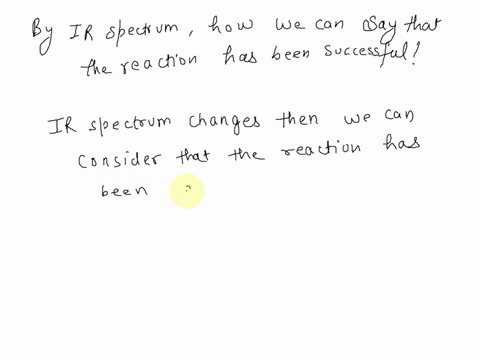 By IR spectrum, how we can say that
the reaction has been successful?
IR spectrum changes then we can
consider that the reaction has
been